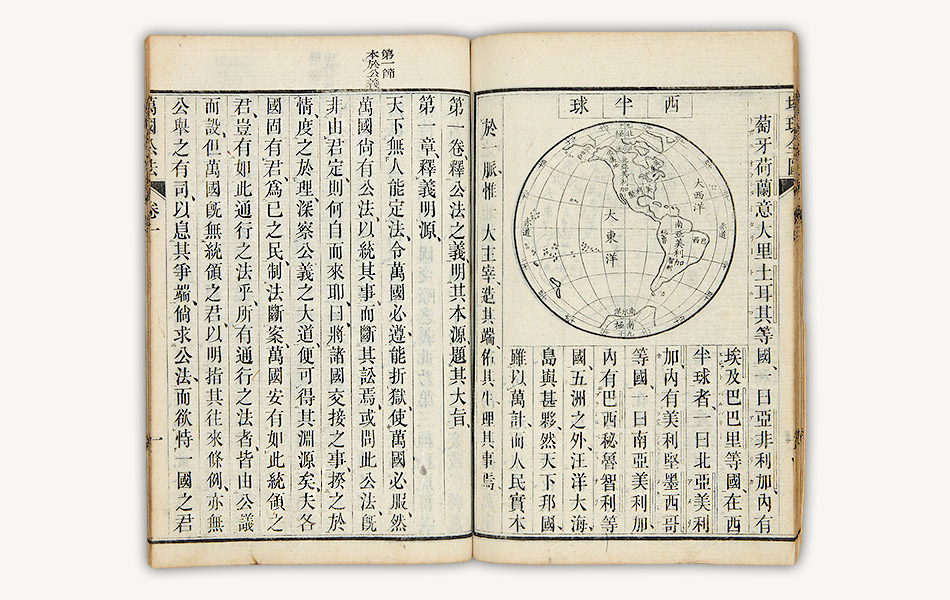 地球全圖
萄牙荷蘭意大里土耳其等國、一曰亞非利加、內有
西半球
北亞美利加
大西洋
大東洋
南亞美利加
巴西
秘魯
智利
赤道
赤道
埃及巴巴里等國、在西
半球者、一曰北亞美利
加、內有美利堅墨西哥
等國、一曰南亞美利加、
內有巴西秘魯智利等
國、五洲之外、汪洋大海、
島與甚夥、然天下邦國、
雖以萬計、而人民實本
於一脈惟一大主宰、造其端、佑其生、理其事焉、
第一節
本於公義
第一卷、釋公法之義、明其本源、題其大旨、
第一章、釋義明源、
天下無人能定法、令萬國必遵、能折獄、使萬國必服、然
萬國尙有公法、以統其事、而斷其訟焉、或問此公法旣
非由君定、則何自而來耶、曰將諸國交接之事、揆之於
情、度之於理、深察公義之大道、便可得其淵源矣、夫各
國固有君、爲己之民制法斷案、萬國安有如此統領之
君、豈有如此通行之法乎、所有通行之法者、皆由公議
而設、但萬國旣無統領之君、以明指其往來條例、亦無
公舉之有司、以息其爭端、倘求公法、而欲恃一國之君
萬國公法
卷一
一